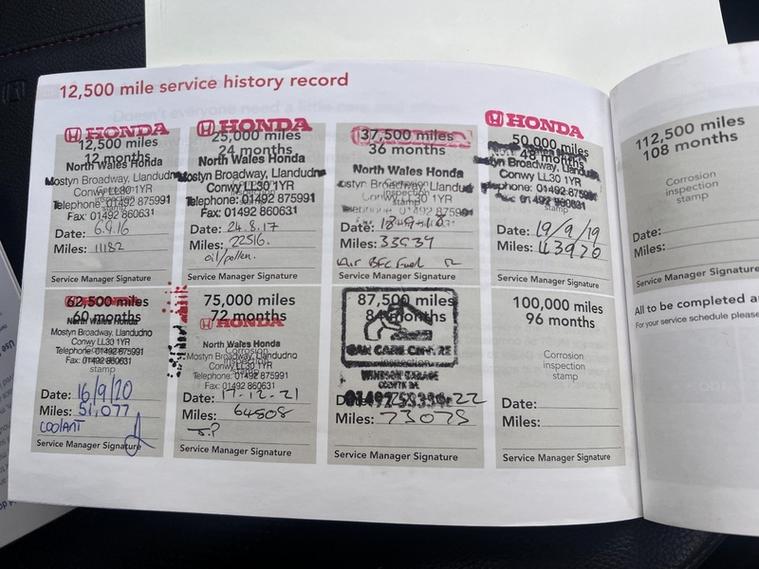 12,500 mile service history record
HONDA
12,500 miles
12 months
North Wales Honda
Mostyn Broadway, Llandudno
Conwy LL30 1YR
Telephone: 01492 875991
Fax: 01492 860631
Date: 6.9.16
Miles: 11182
Service Manager Signature
HONDA
25,000 miles
24 months
North Wales Honda
Mostyn Broadway, Llandudno
Conwy LL30 1YR
Telephone: 01492 875991
Fax: 01492 860631
Date: 24.8.17
Miles: 22516.
oil/pollen.
Service Manager Signature
37,500 miles
36 months
North Wales Honda
Mostyn Broadway, Llandud
Conwy LL30 1YR
01492 875991
Date: 18-9-18
Miles: 33939
Air BFC Fuel
Service Manager Signature
HONDA
50,000 miles
48 months
Mostyn Broadway, Llandud
Conwy LL30 1YR
Telephone: 01492 875991
Date: 19/9/19
Miles: 43920
Service Manager Signature
62,500 miles
60 months
North Wales Honda
Mostyn Broadway, Llandudno
Conwy LL30 1YR
Telephone: 01492 875991
Fax: 01492 860631
Date: 16/9/20
Miles: 51,077
COOLANT
Service Manager Signature
75,000 miles
72 months
HONDA
North Wales Honda
Mostyn Broadway, Llandudno
Conwy LL30 1YR
Telephone: 01492 875991
Fax: 01492 860631
Date: 17-12-21
Miles: 64508
Service Manager Signature
87,500 miles
84 months
CAR CARE
GARAGE
01492
22
Miles: 73075
Service Manager Signature
100,000 miles
96 months
Corrosion
inspection
stamp
Date:
Miles:
Service Manager Signature
112,500 miles
108 months
Corrosion
inspection
stamp
Date:
Miles:
Service Manager Signature
All to be completed
For your service schedule please